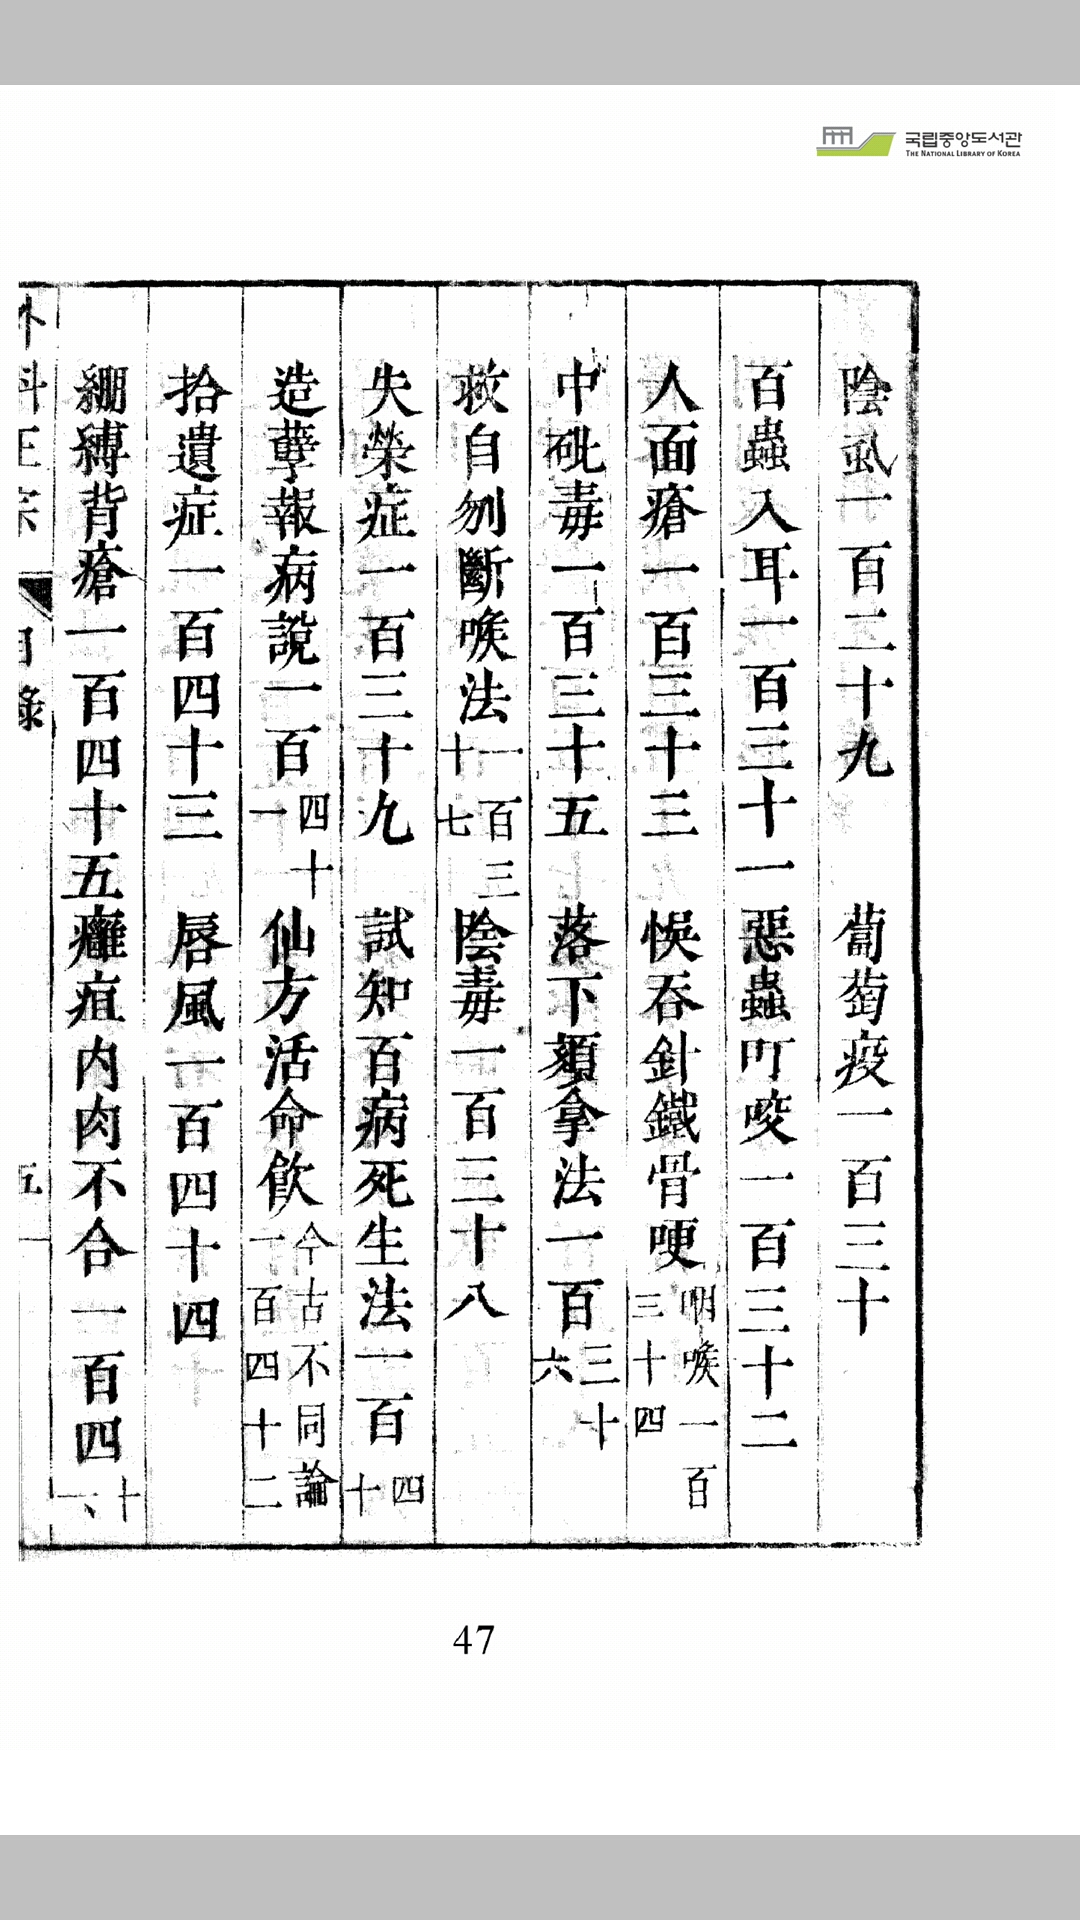 국립중앙도서관
THE NATIONAL LIBRARY OF KOREA
陰虱一百二十九 葡萄疫一百三十
百蟲入耳一百三十一 惡蟲叮咬一百三十二
人面瘡一百三十三 悞吞針鐵骨哽 咽喉一百三十四
中砒毒一百三十五 落下頦拿法一百三十六
救自刎斷喉法一百三十七 陰毒一百三十八
失榮症一百三十九 試知百病死生法一百四十
造孽報病說一百四十一 仙方活命飲 今古不同論一百四十二
拾遺症一百四十三 唇風一百四十四
綳縛背瘡一百四十五 癰疽内肉不合一百四十六
外科正宗 目錄 五
47